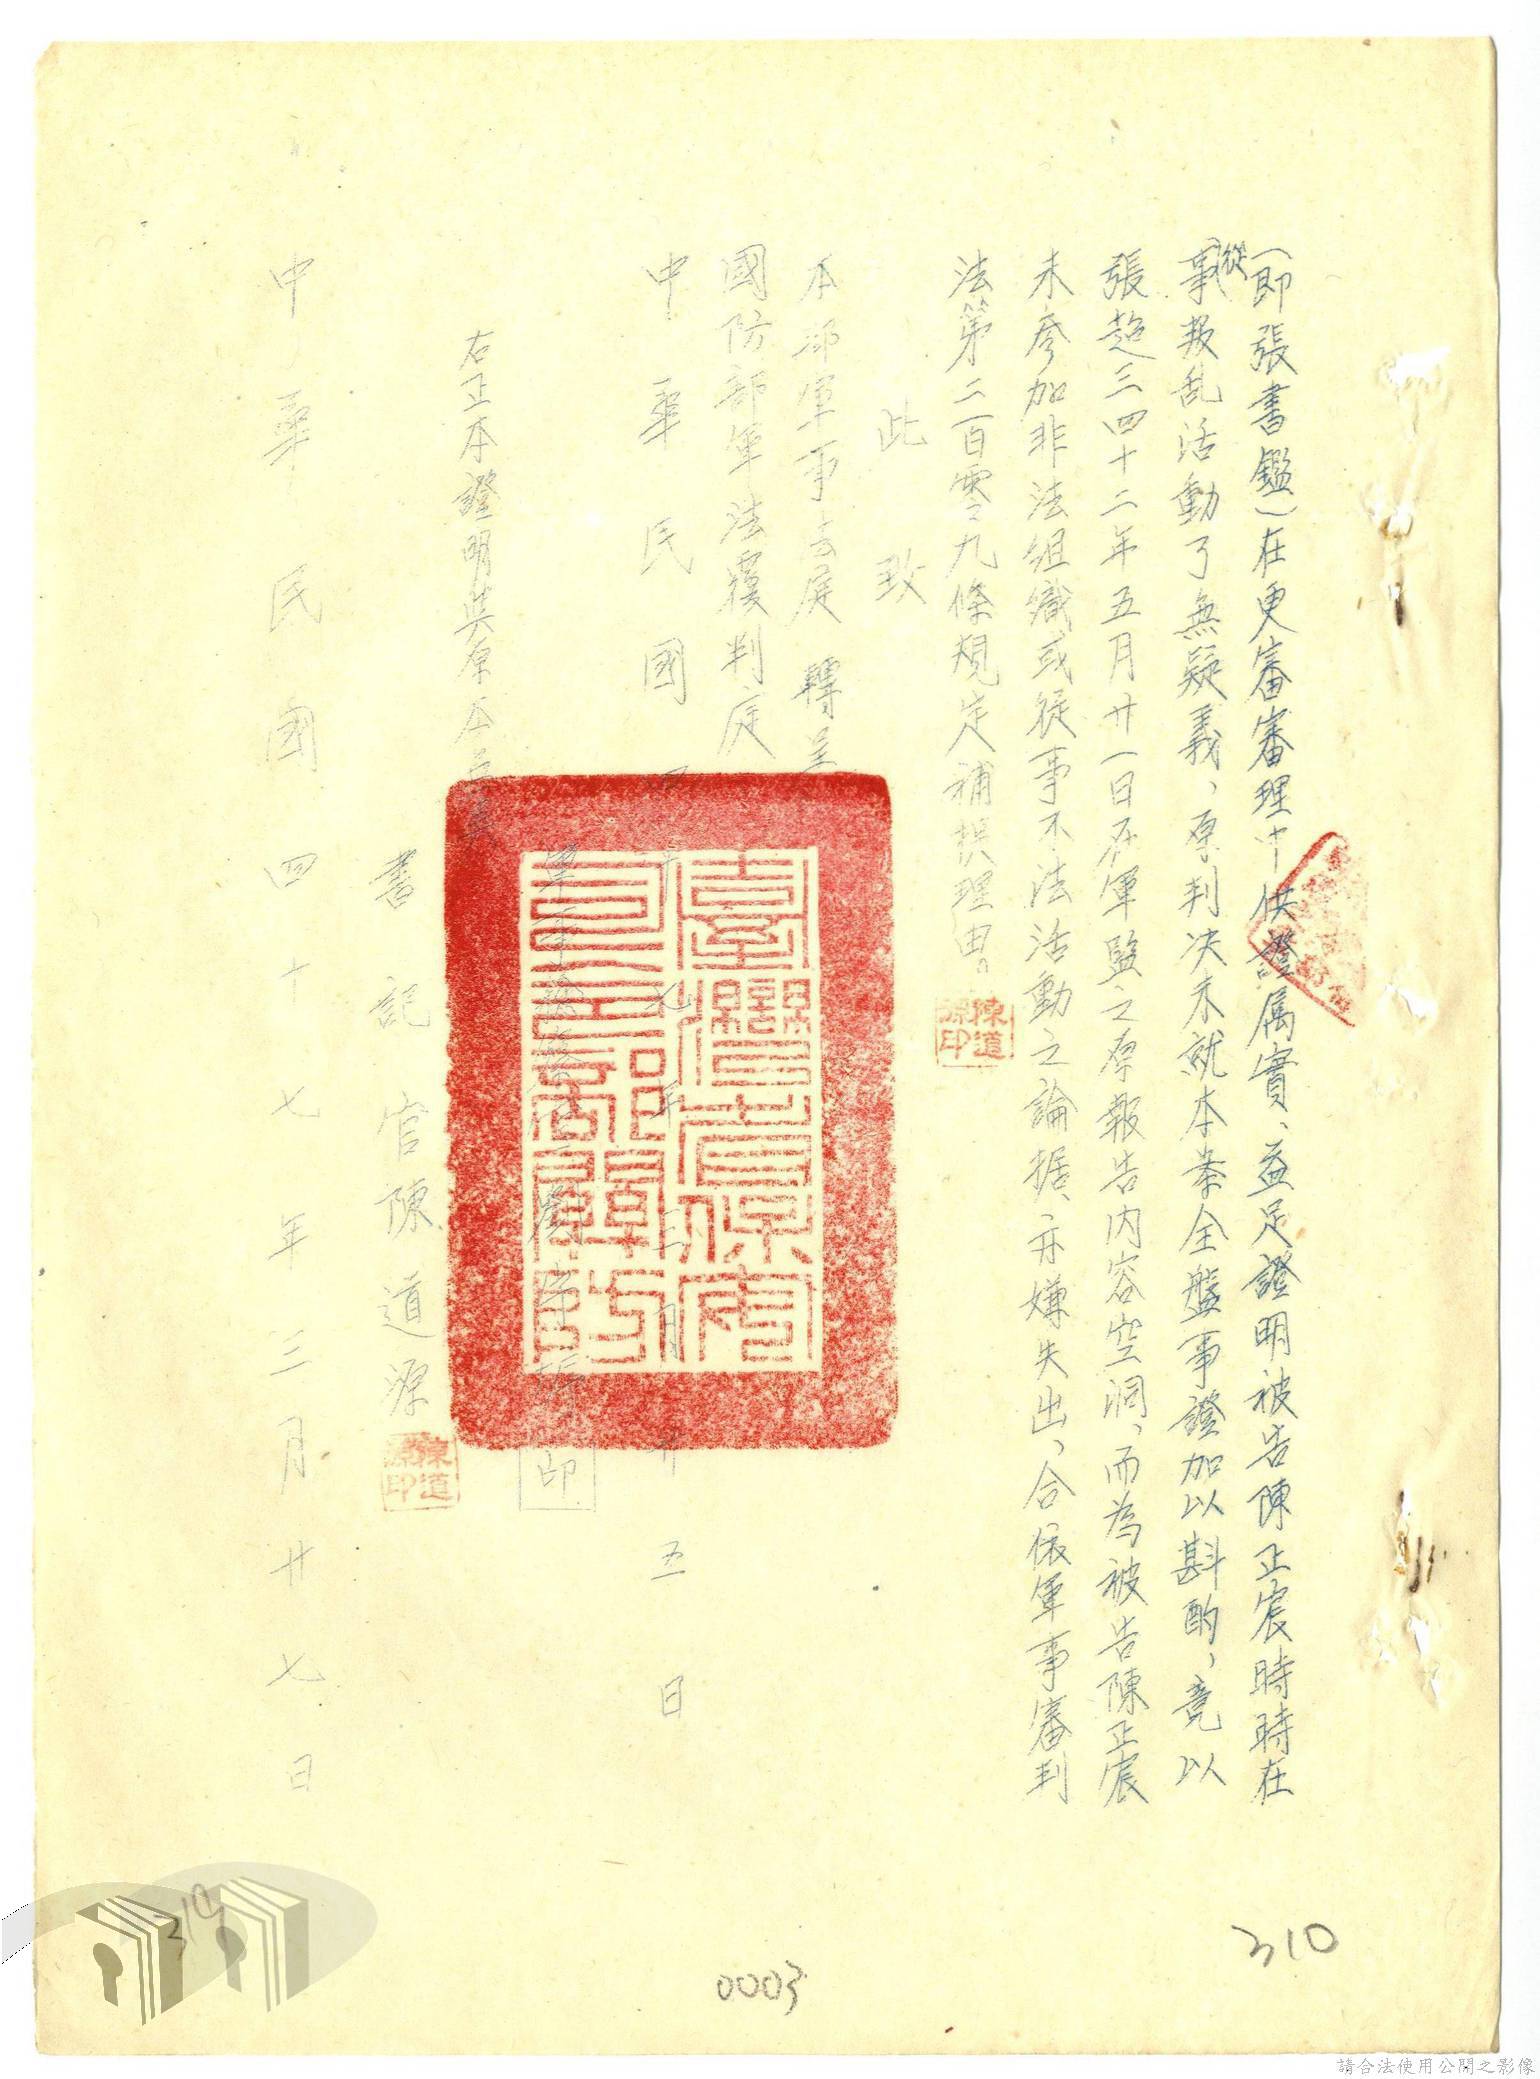 (即張書鑑)在更審審理中供證属實、益足證明被告陳正宸時時在
從事叛乱活動了無疑義、原判決未就本案全盤事證加以斟酌、竟以
張超三四十二年五月廿一日在軍監之原報告內容空洞、而為被告陳正宸
未參加非法組織或從事不法活動之論据、亦嫌失出、合依軍事審判
法第二百零九條規定補提理由。
陳道源印
此致
本部軍事法庭 轉呈
國防部軍法覆判庭
中華民國四十七年三月廿五日
印
右正本證明與原本無異
書記官陳道源
陳道源印
中華民國四十七年三月廿七日
310
310
0003
請合法使用公開之影像